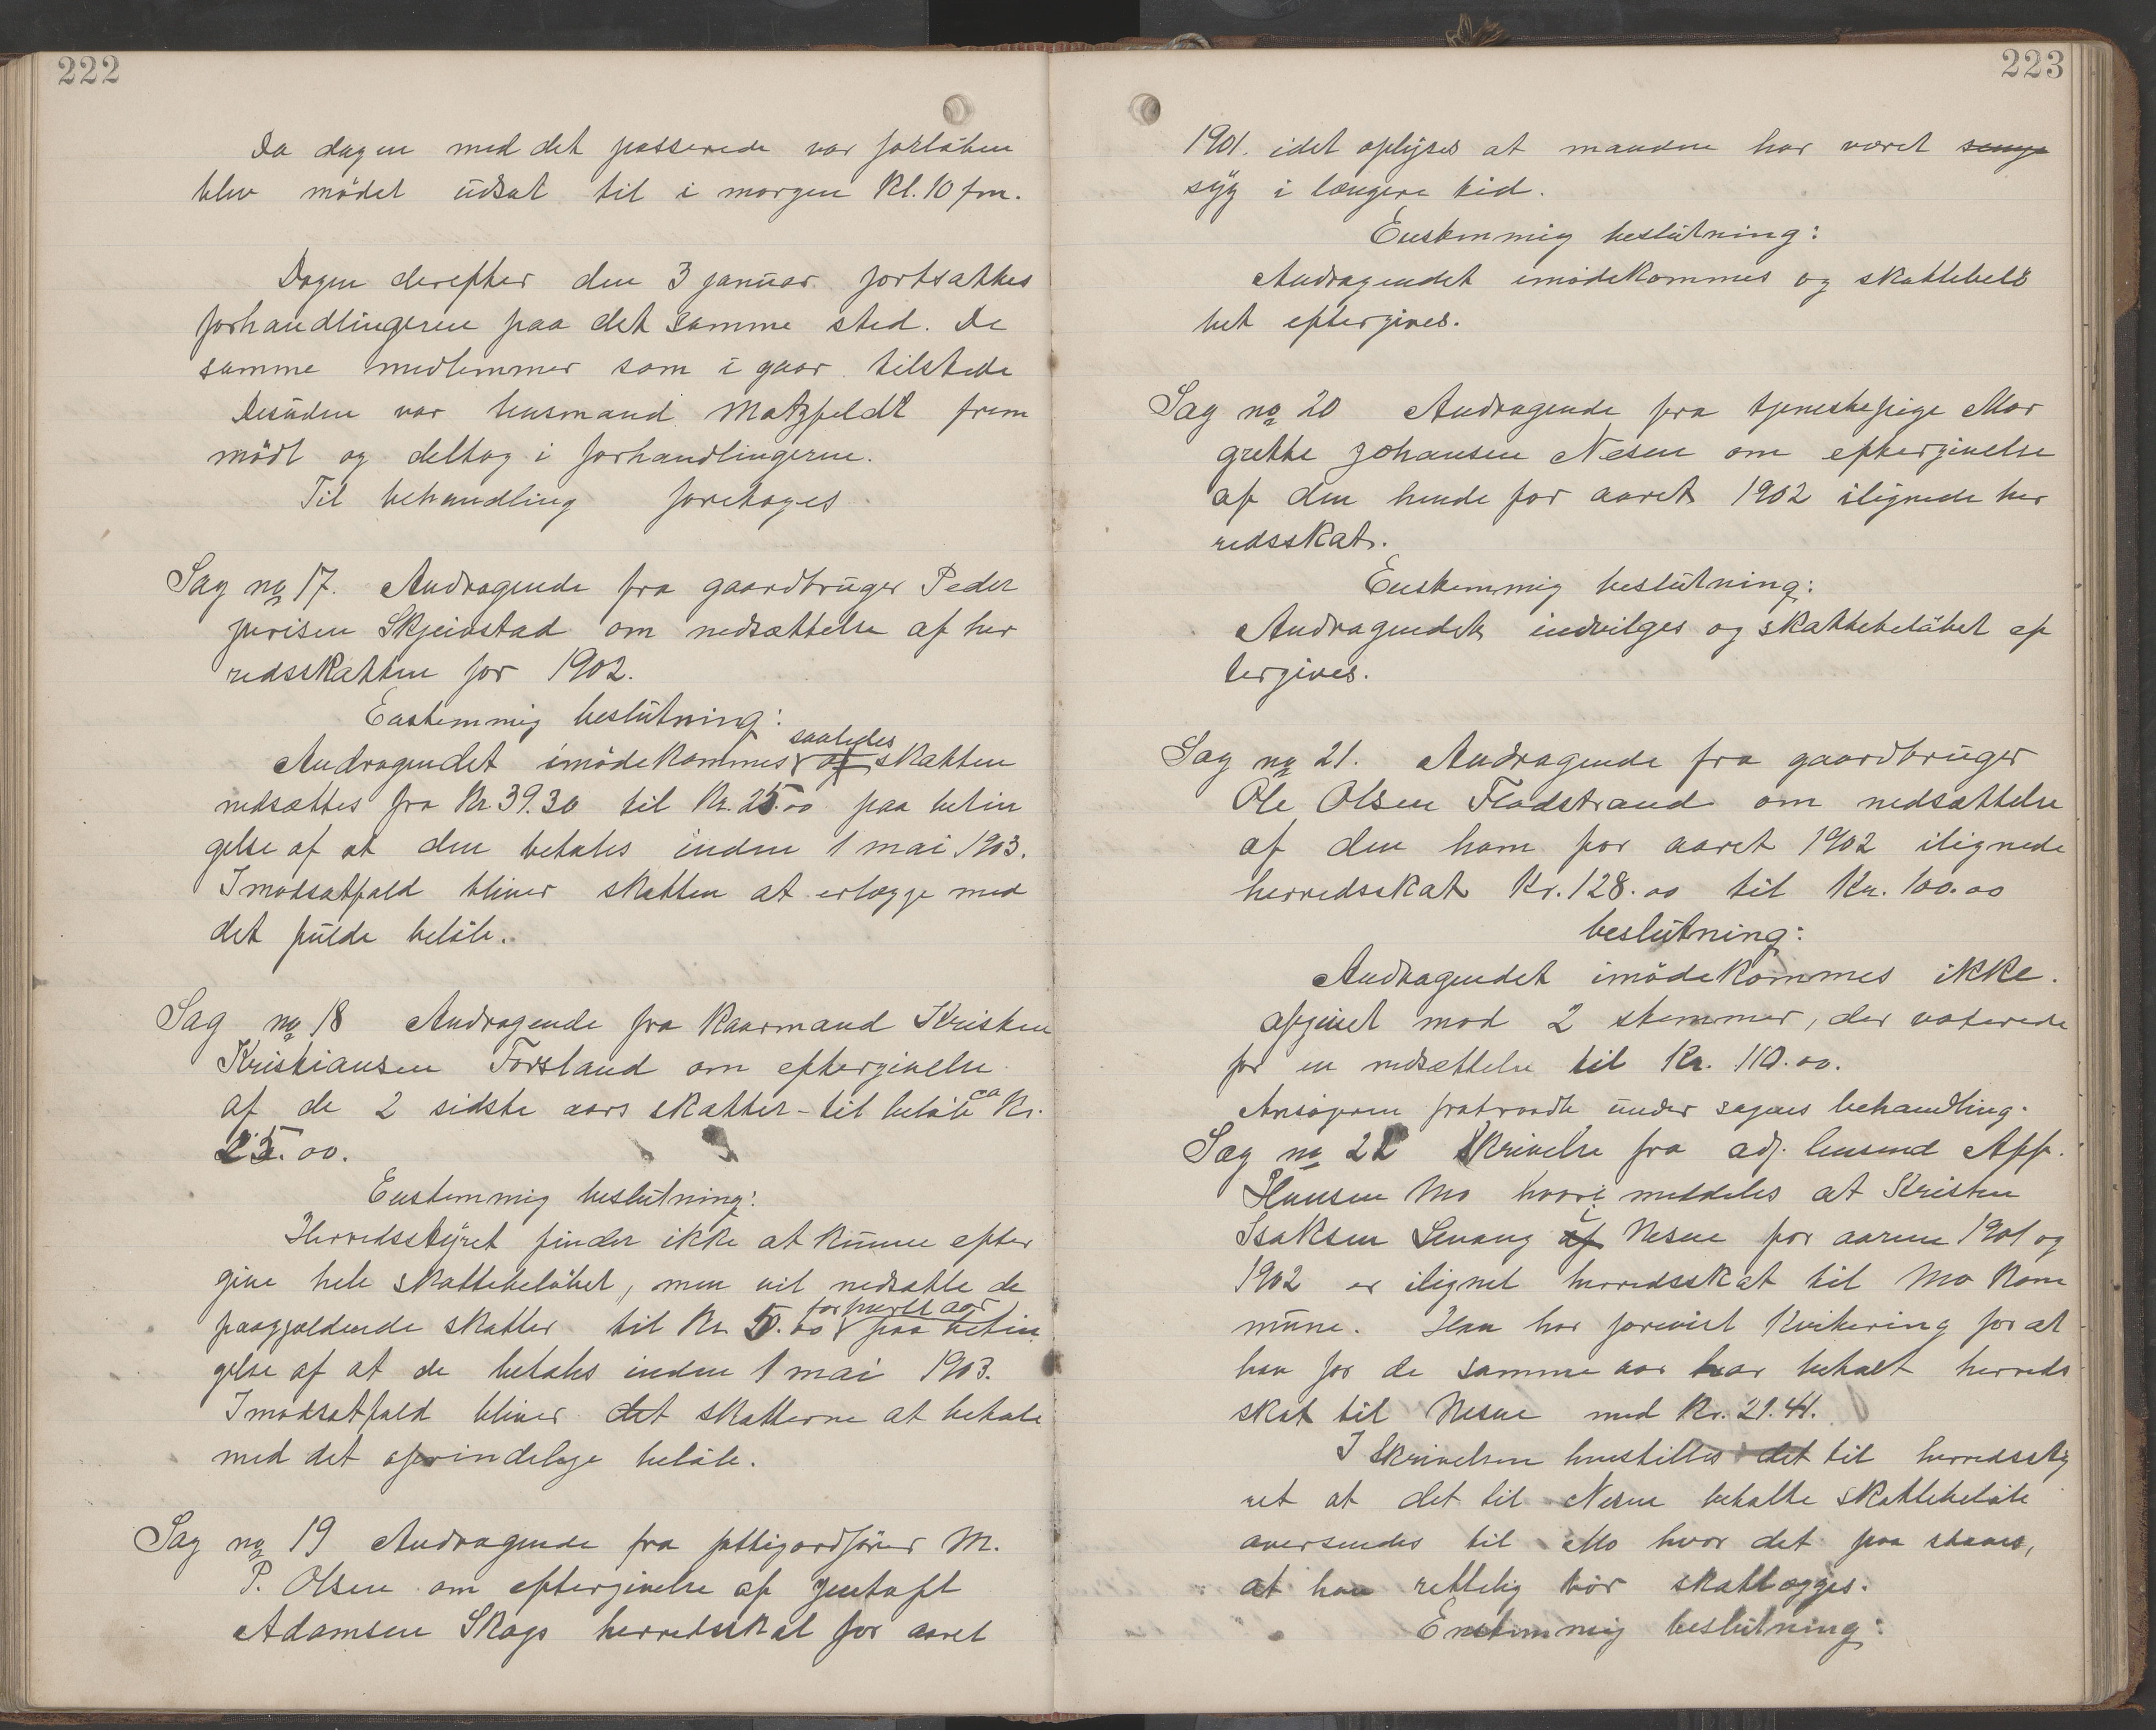 222
Da dagen med det passerede var forløben
blev mödet üdsat til i morgen Kl. 10 fm.
Dagen derefter den 3 janüar fortsattes
forhandlingerne paa det samme sted. De
samme medlemmer som i gaar tilstede
Desüden var lensmand Matzfeldt frem
mödt og deltog i forhandlingerne.
Til behandling foretoges
Sag no 17. Andragende fra gaardbrüger Peder
Skjeivstad om nedsættelse af her
redsskatten for 1902.
Enstemmig beslütning:
Andragendet imödekommes saaledes at skatten
nedsættes fra Kr 39.30 til Kr. 25.00 paa betin
gelse af at den betales inden 1 mai 1903.
I modsatfald bliver skatten at erlægge med
det fülde belöb.
Sag no 18 Andragende fra Kaarmand Kristen
Kristiansen Forsland om eftergivelse
af de 2 sidste aars skatter - til belöb ca Kr.
25.00.
Enstemmig beslütning:
Herredsstyret finder ikke at künne efter
give hele skattebelöbet, men vil nedsætte de
paagjældende skatter til Kr. 5.00 for hvert aar paa betin
gelse af at de betales inden 1 mai 1903.
I modsatfald bliver det skatterne at betale
med det oprindelige belöb.
Sag no 19 Andragende fra fattigordförer M.
P. Olsen om eftergivelse af Jentoft
Adamsen Skogs herredsskat for aaret
223
1901. idet oplyses at manden har været senge
syg i længere tid.
Enstemmig beslütning:
Andragendet imödekommes og skattebelö
bet eftergives.
Sag no 20 Andragende fra tjenestepige Mar
grethe Johansen Nesne om eftergivelse
af den hende for aaret 1902 ilignede her
redsskat.
Enstemmig beslütning:
Andragendet indvilges og skattebelöbet ef
tergives.
Sag no 21. Andragende fra gaardbrüger
Ole Olsen Flodstrand om nedsættelse
af den ham for aaret 1902 ilignede
herredsskat Kr. 128.00 til Kr. 100.00
beslütning:
Andragendet imödekommes ikke.
afgivet mod 2 stemmer, der voterede
for en nedsættelse til Kr. 110.00.
Ansögeren fratraadte ünder sagens behandling.
Sag no 22 Skrivelse fra adj. lensmd App.
Hansen Mo hvori meddeles at Kristen
Isaksen Levang af i Nesne for aarene 1901 og
1902 er ilignet herredsskat til Mo Kom
müne. Han har forevist Kvitering for at
han for de samme aar har betalt herreds
skat til Nesne med Kr. 21.41.
I Skrivelsen henstilles det til herredssty
ret at det til Nesne betalte skattebelöb
oversendes til Mo hvor det paa staaes,
at han rettelig bör skatlægges.
Enstemmig beslütning: